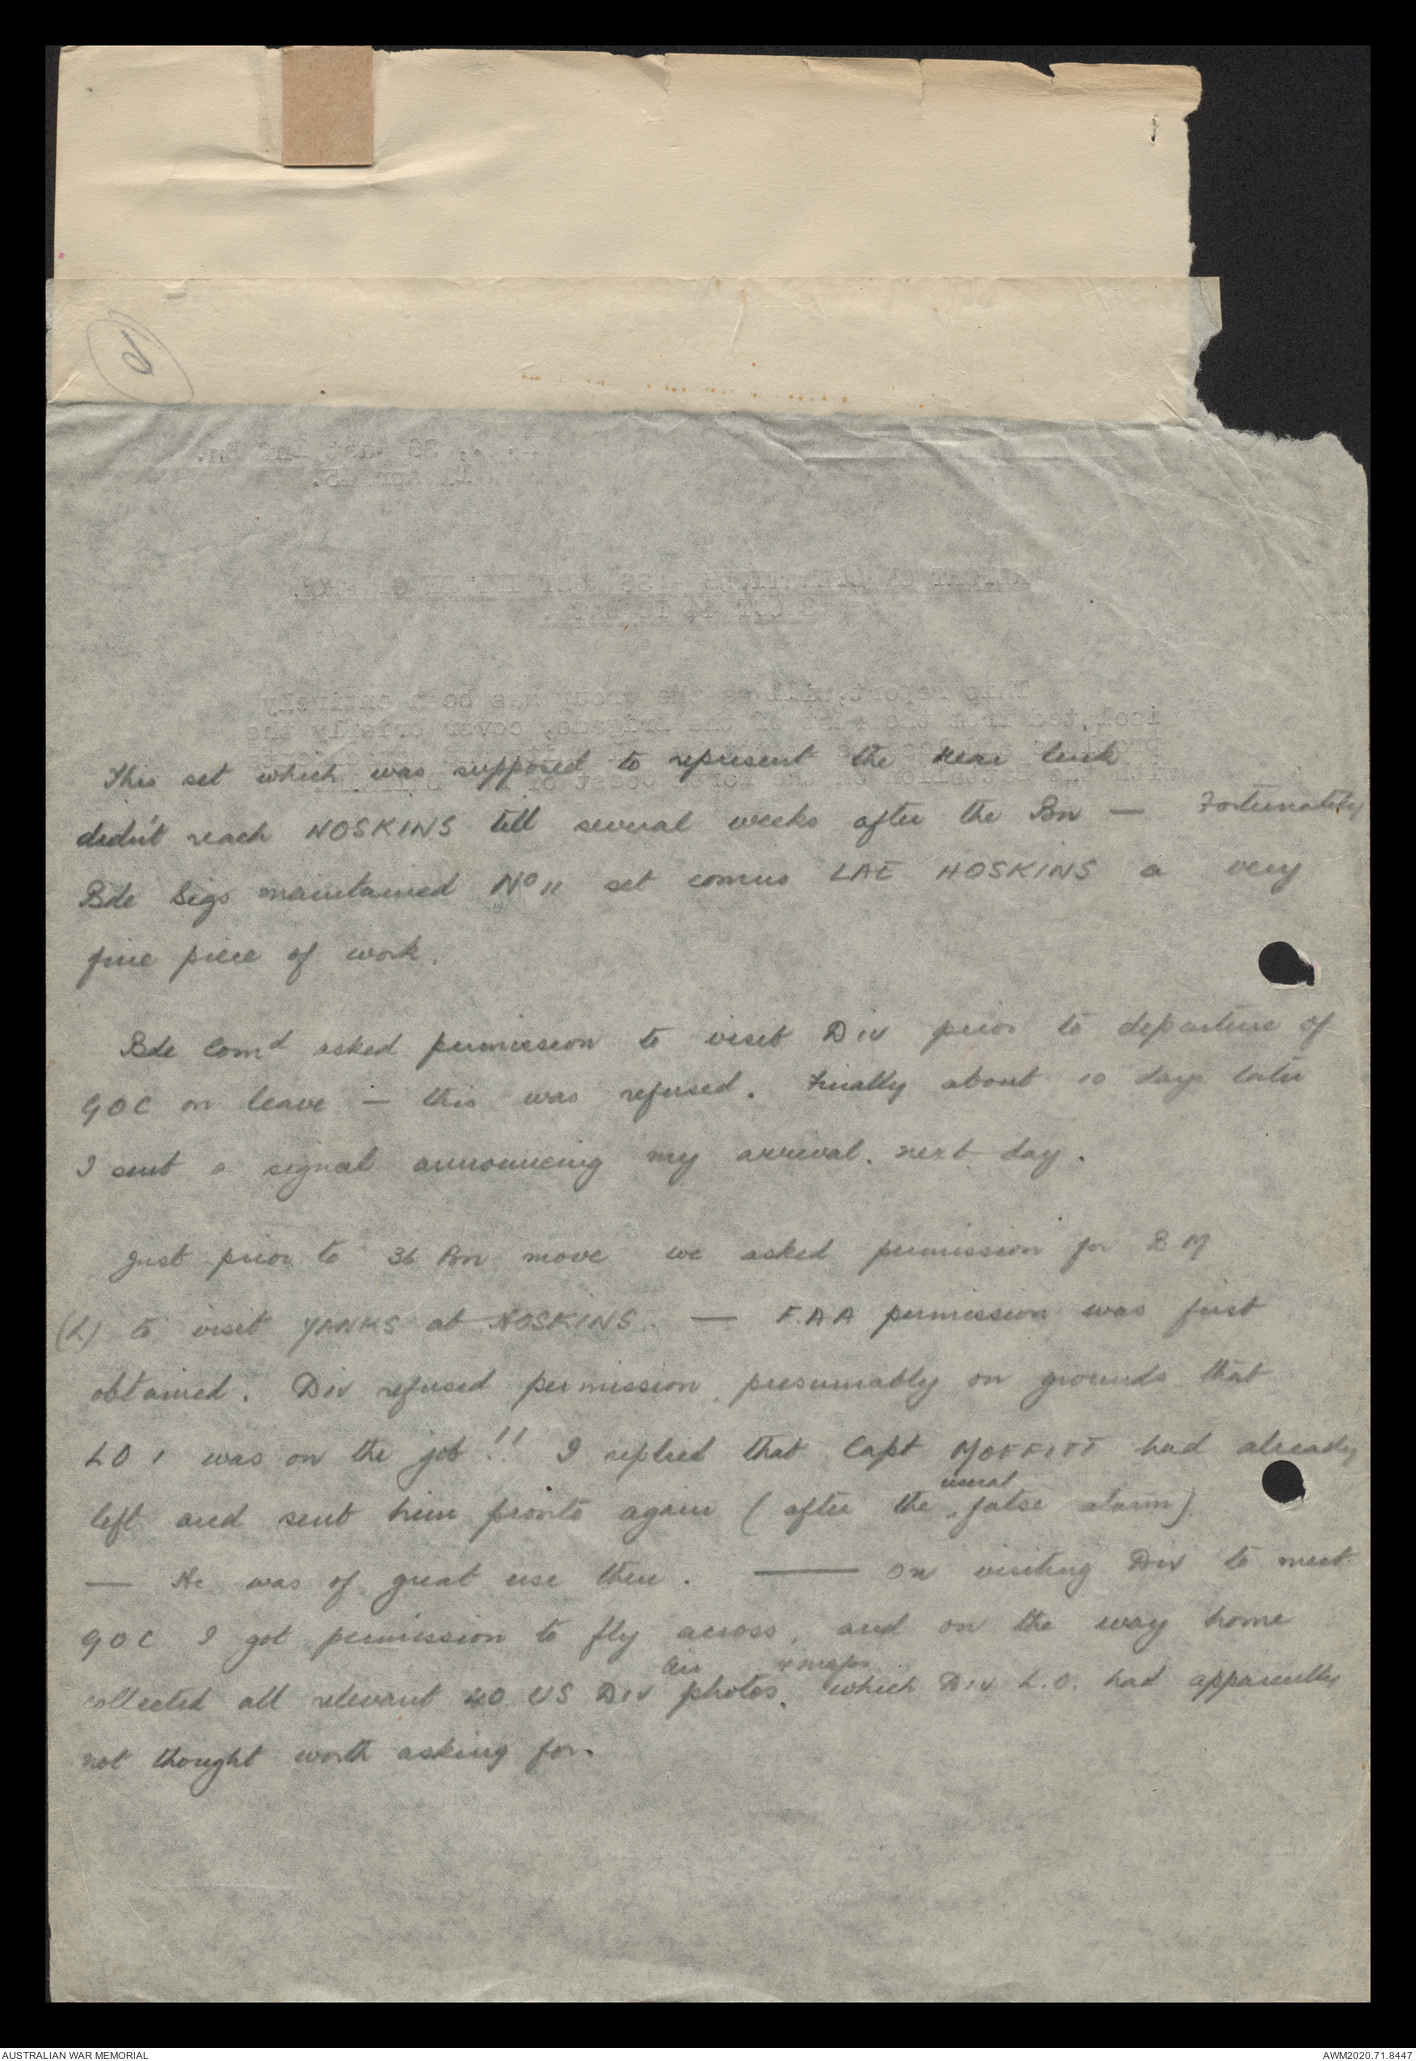 6
This set which was supposed to represent the Rear link
didn't reach HOSKINS till several weeks after the Bn — Fortunately
Bde Sigs maintained No 11 set comns LAE HOSKINS a very
fine piece of work.
Bde Comd asked permission to visit Div prior to departure of
GOC on leave — this was refused. Finally about 10 days later
I sent a signal announcing my arrival next day.
Just prior to 36 Bn move we asked permission for BM
(L) to visit YANKS at HOSKINS. — F.A.A permission was first
obtained. Div refused permission, presumably on grounds that
LO 1 was on the job!! I replied that Capt MOFFITT had already
usual
left and sent him pronto again (after the false alarm)
— He was of great use there. — On visiting Div to meet
GOC I got permission to fly across, and on the way home
Air & maps
collected all relevant 40 US Div photos, which Div L.O. had apparently
not thought worth asking for.
AUSTRALIAN WAR MEMORIAL
AWM2020.71.8447